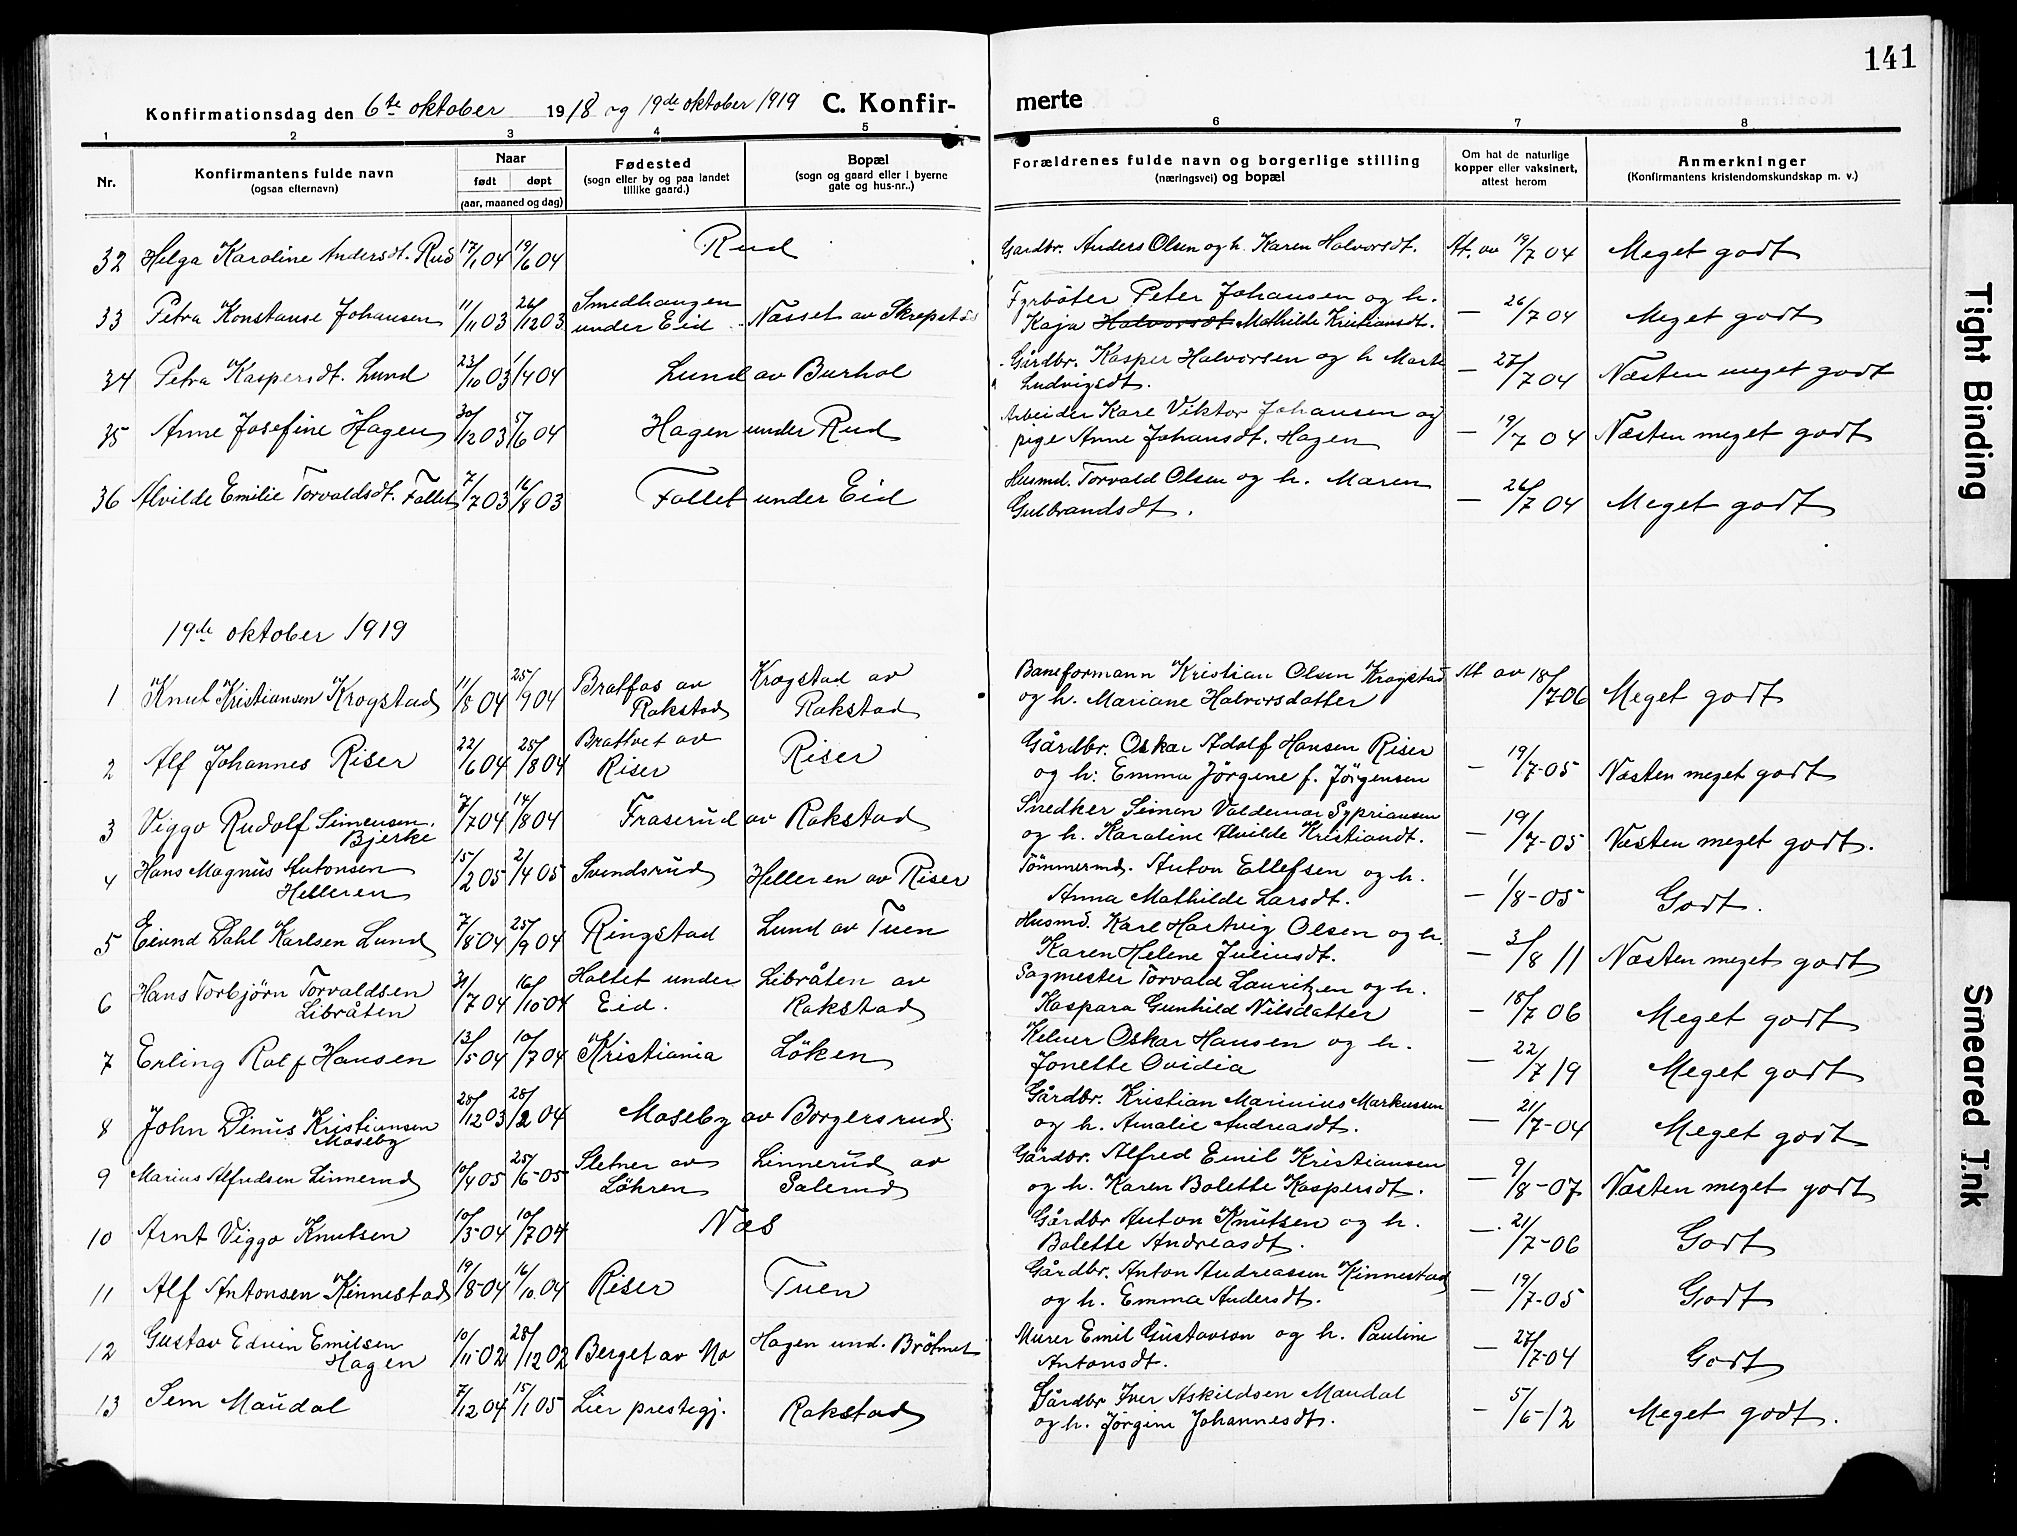 141
Konfirmationsdag den 6te oktober 1918 og 19de oktober 1919 C. Konfir-merte
1 2 3 4 5 6 7 8
Nr.
Konfirmantens fulde navn
(ogsaa efternavn)
Naar
født døpt
(aar, maaned og dag)
Fødested
(sogn eller by og paa landet
tillike gaard.)
Bopæl
(sogn og gaard eller i byerne
gate og hus-nr.)
Forældrenes fulde navn og borgerlige stilling
(næringsvei) og bopæl
Om hat de naturlige
kopper eller vaksinert,
attest herom
Anmerkninger
(Konfirmantens kristendomskundskap m. v.)
32 Helga Karoline Andersdt. Rud 17/1 04 19/6 04 Rud Gårdbr. Anders Olsen og h. Karen Halvorsdt. At. av 19/7 04 Meget godt
33 Petra Konstanse Johansen 11/11 03 26/12 03 Smedhaugen under Eid Næsset av Skrepstad Fyrbøter Peter Johansen og h. Kaja Halvorsdt Mathilde Kristiansdt. — 26/7 04 Meget godt
34 Petra Kaspersdt. Lund 23/10 03 1/4 04 Lund av Burhol Gårdbr. Kasper Halvorsen og h Marte Ludvigsdt. — 27/7 04 Næsten meget godt
35 Anne Josefine Hagen 30/12 03 5/6 04 Hagen under Rud Arbeider Kare Viktor Johansen og pige Anne Johansdt. Hagen — 19/7 04 Næsten meget godt
36 Alvilde Emilie Torvaldsdt. Fallet 7/7 03 16/8 03 Fallet under Eid Husmd. Torvald Olsen og h. Maren Gulbrandsdt. — 26/7 04 Meget godt
19de oktober 1919
1 Knut Kristiansen Krogstad 11/8 04 25/9 04 Bratfos av Rakstad Krogstad av Rakstad Baneformann Kristian Olsen Krogstad og h. Mariane Halvorsdatter At av 18/7 06 Meget godt
2 Alf Johannes Riser 22/6 04 28/8 04 Brattvet av Riser Riser Gårdbr. Oskar Adolf Hansen Riser og h: Emma Jörgine f. Jörgensen — 19/7-05 Næsten meget godt
3 Viggo Rudolf Simensen Bjerke 7/7 04 14/8 04 Fraserud av Rakstad Snedker Simen Valdemar Sypriansen og h. Karoline Alvilde Kristiandt. — 19/7-05 Næsten meget godt.
4 Hans Magnus Antonsen Helleren 15/2 05 2/4 05 Svendsrud Helleren av Riser Tömmermd. Anton Ellefsen og h. Anna Mathilde Larsdt. — 1/8-05 Godt.
5 Eivind Dahl Karlsen Lund 7/8-04 25/9 04 Ringstad Lund av Tuen Husmd. Karl Hartvig Olsen og h. Karen Helene Juliusdt. — 3/8 11 Næsten meget godt
6 Hans Torbjörn Torvaldsen Libråten 30/7 04 16/10-04 Haltet under Eid. Libråten av Rakstad Sagmester Torvald Lauritzen og h. Kaspara Gunhild Nilsdatter — 18/7 06 Meget godt
7 Erling Rolf Hansen 13/5 04 10/7 04 Kristiania Löken Kelner Oskar Hansen og h. Jonette Ovidia — 22/7 19 Meget godt
8 John Dinus Kristiansen Moseby 28/12 03 28/2 04 Moseby av Borgersrud Gårdbr. Kristian Marinius Markussen og h. Amalie Andreasdt. — 21/7-04 Meget godt
9 Marius Alfredsen Linnerud 10/4 05 25/6-05 Sletner av Löhren Linnerud av Salerud Gårdbr. Alfred Emil Kristiansen og h. Karen Bolette Kaspersdt. — 9/8-07 Næsten meget godt
10 Arnt Viggo Knutsen 10/5-04 10/7 04 Næs Gårdbr Anton Knutsen og h. Bolette Andreasdt. — 21/7-06 Godt
11 Alf Antonsen Kinnestad 19/8-04 16/10.04 Riser Tuen Gårdbr. Anton Andreassen Kinnestad og h. Emma Andersdt. — 19/7-05 Godt
12 Gustav Edvin Emilsen Hagen 10/11-02 28/12 02 Berget av Mo Hagen und. Brölmet Murer Emil Gustavson og h. Pauline Antonsdt. — 27/7-04 Godt
13 Sem Maudal 7/12 04 15/1 05 Lier prestegj. Rakstad Gårdbr Iver Askildsen Maudal og h. Jørgine Johannesdt. — 5/6-12 Meget godt.
Tight Binding
Smeared Ink